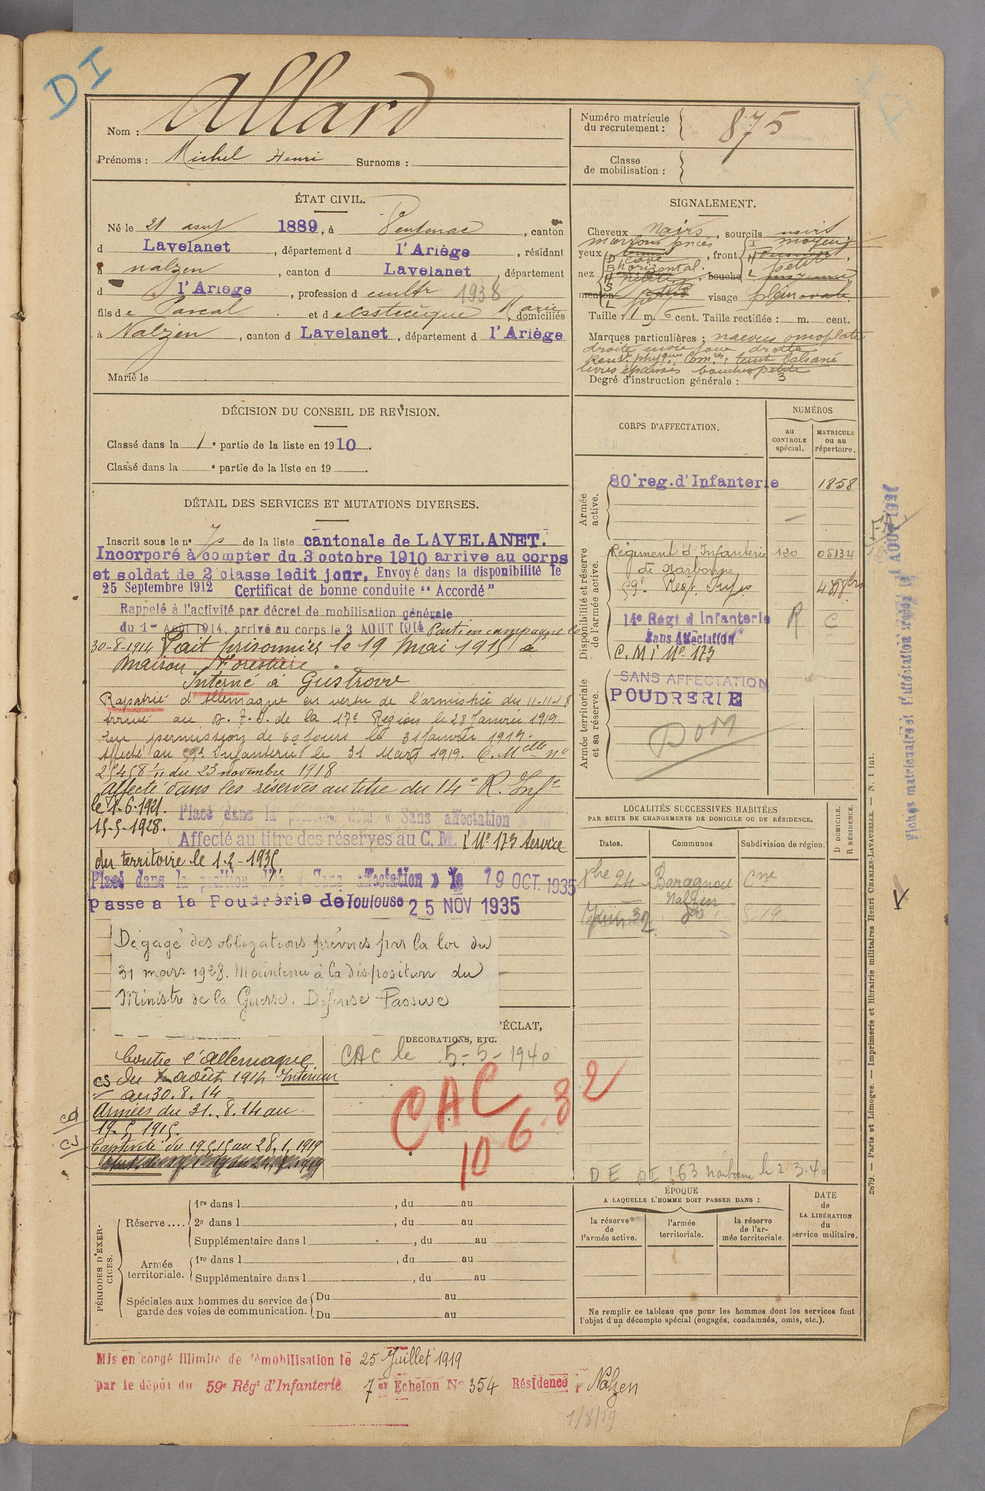 DI
Nom : Allard
Prénoms : Michel Henri Surnoms :
Numéro matricule du recrutement : 875
Classe de mobilisation :
ÉTAT CIVIL.
Né le 21 1889, à , canton
d Lavelanet, département d l'Ariège, résidant
à nalzen, canton d Lavelanet, département
d l'Ariège, profession d cultr 1938
fils de Pascal et de Marie domiciliés
à Nalzen, canton d Lavelanet, département d l'Ariège
Marié le
SIGNALEMENT.
Cheveux noirs, sourcils noirs
yeux , front
nez horizontal, bouche
menton visage plein ovale
Taille : 1 m. 6 cent. Taille rectifiée : m. cent.
Marques particulières : naevus omoplate
droite
lèvres épaisses bouche petite
Degré d'instruction générale : 3
DÉCISION DU CONSEIL DE REVISION.
Classé dans la 1e partie de la liste en 1910.
Classé dans la e partie de la liste en 19
CORPS D'AFFECTATION.
NUMÉROS
au CONTROLE spécial.
MATRICULE ou au répertoire.
Armée active.
80e reg. d'Infanterie 1858
Disponibilité et réserve de l'armée active.
Régiment d'Infanterie 120 05134
de Narbonne
59e Reg. Infie
14e Regt d'Infanterie R C
Sans Affectation
C. M. I. No 173
Armée territoriale et sa réserve.
SANS AFFECTATION
POUDRERIE
DOM
DÉTAIL DES SERVICES ET MUTATIONS DIVERSES.
Inscrit sous le no 7 de la liste cantonale de LAVELANET.
Incorporé à compter du 3 octobre 1910 arrive au corps
et soldat de 2 classe ledit jour. Envoyé dans la disponibilité le
25 Septembre 1912 Certificat de bonne conduite "Accordé"
Rappelé à l'activité par décret de mobilisation générale
du 1er Août 1914, arrivé au corps le 3 AOUT 1914 Parti en campagne le
30-8-1914 Fait prisonnier le 19 Mai 1915 à
Maison Forestière.
Interné à Gustrow
Rapatrié d'Allemagne en vertu de l'armistice du 11.11.18
arrivé au D. I. de la 17e Région le 23 Janvier 1919.
En permission de 60 jours le 31 Janvier 1919.
Affecté au 59e Infanterie le 31 Mars 1919. C. Melle no
25458 1/11 du 23 novembre 1918
Affecté dans les réserves au titre du 14e R. Infie
le 1-6-1921.
15-5-1928. Placé dans la position dite "Sans affectation"
Affecté au titre des réserves au C. M. I. No 173 Service
du territoire le 1-2-1935
Placé dans la position dite "Sans affectation" le 19 OCT. 1935
passe a la Poudrerie de Toulouse 25 NOV 1935
Dégagé des obligations prévues par la loi du
31 mars 1928. Maintenu à la disposition du
Ministre de la Guerre. Défense Passive
LOCALITÉS SUCCESSIVES HABITÉES
PAR SUITE DE CHANGEMENTS DE DOMICILE OU DE RÉSIDENCE.
Dates.
Communes
Subdivision de région.
D DOMICILE. R RÉSIDENCE.
Xbre 24 Baragnou Cne
Nalzen
'ÉCLAT,
DÉCORATIONS, ETC.
Contre l'Allemagne
CS du août 1914 Intérieur
au 30.8.14
Armées du 31.8.14 au
19.5.1915.
Captivité du 19.5.15 au 28.1.1919
CAC le 5-5-1940
CAC
10 6 32
DE DE 163 Narbonne le 2.3.40
PÉRIODES D'EXERCICES.
Réserve ....
1re dans l , du au
2e dans l , du au
Supplémentaire dans l , du au
Armée territoriale.
1re dans l , du au
Supplémentaire dans l , du au
Spéciales aux hommes du service de garde des voies de communication.
Du au
Du au
ÉPOQUE
A LAQUELLE L'HOMME DOIT PASSER DANS :
la réserve de l'armée active.
l'armée territoriale.
la réserve de l'armée territoriale.
DATE DE LA LIBÉRATION du service militaire.
Ne remplir ce tableau que pour les hommes dont les services font
l'objet d'un décompte spécial (engagés, condamnés, omis, etc.).
Mis en congé illimité de démobilisation le 25 Juillet 1919
par le dépôt du 59e Régt d'Infanterie 7er Echelon No 354 Résidence : Nalzen
1/8/19
2679. — Paris et Limoges. — Imprimerie et librairie militaires Henri CHARLES-LAVAUZELLE. — N. 1 int.